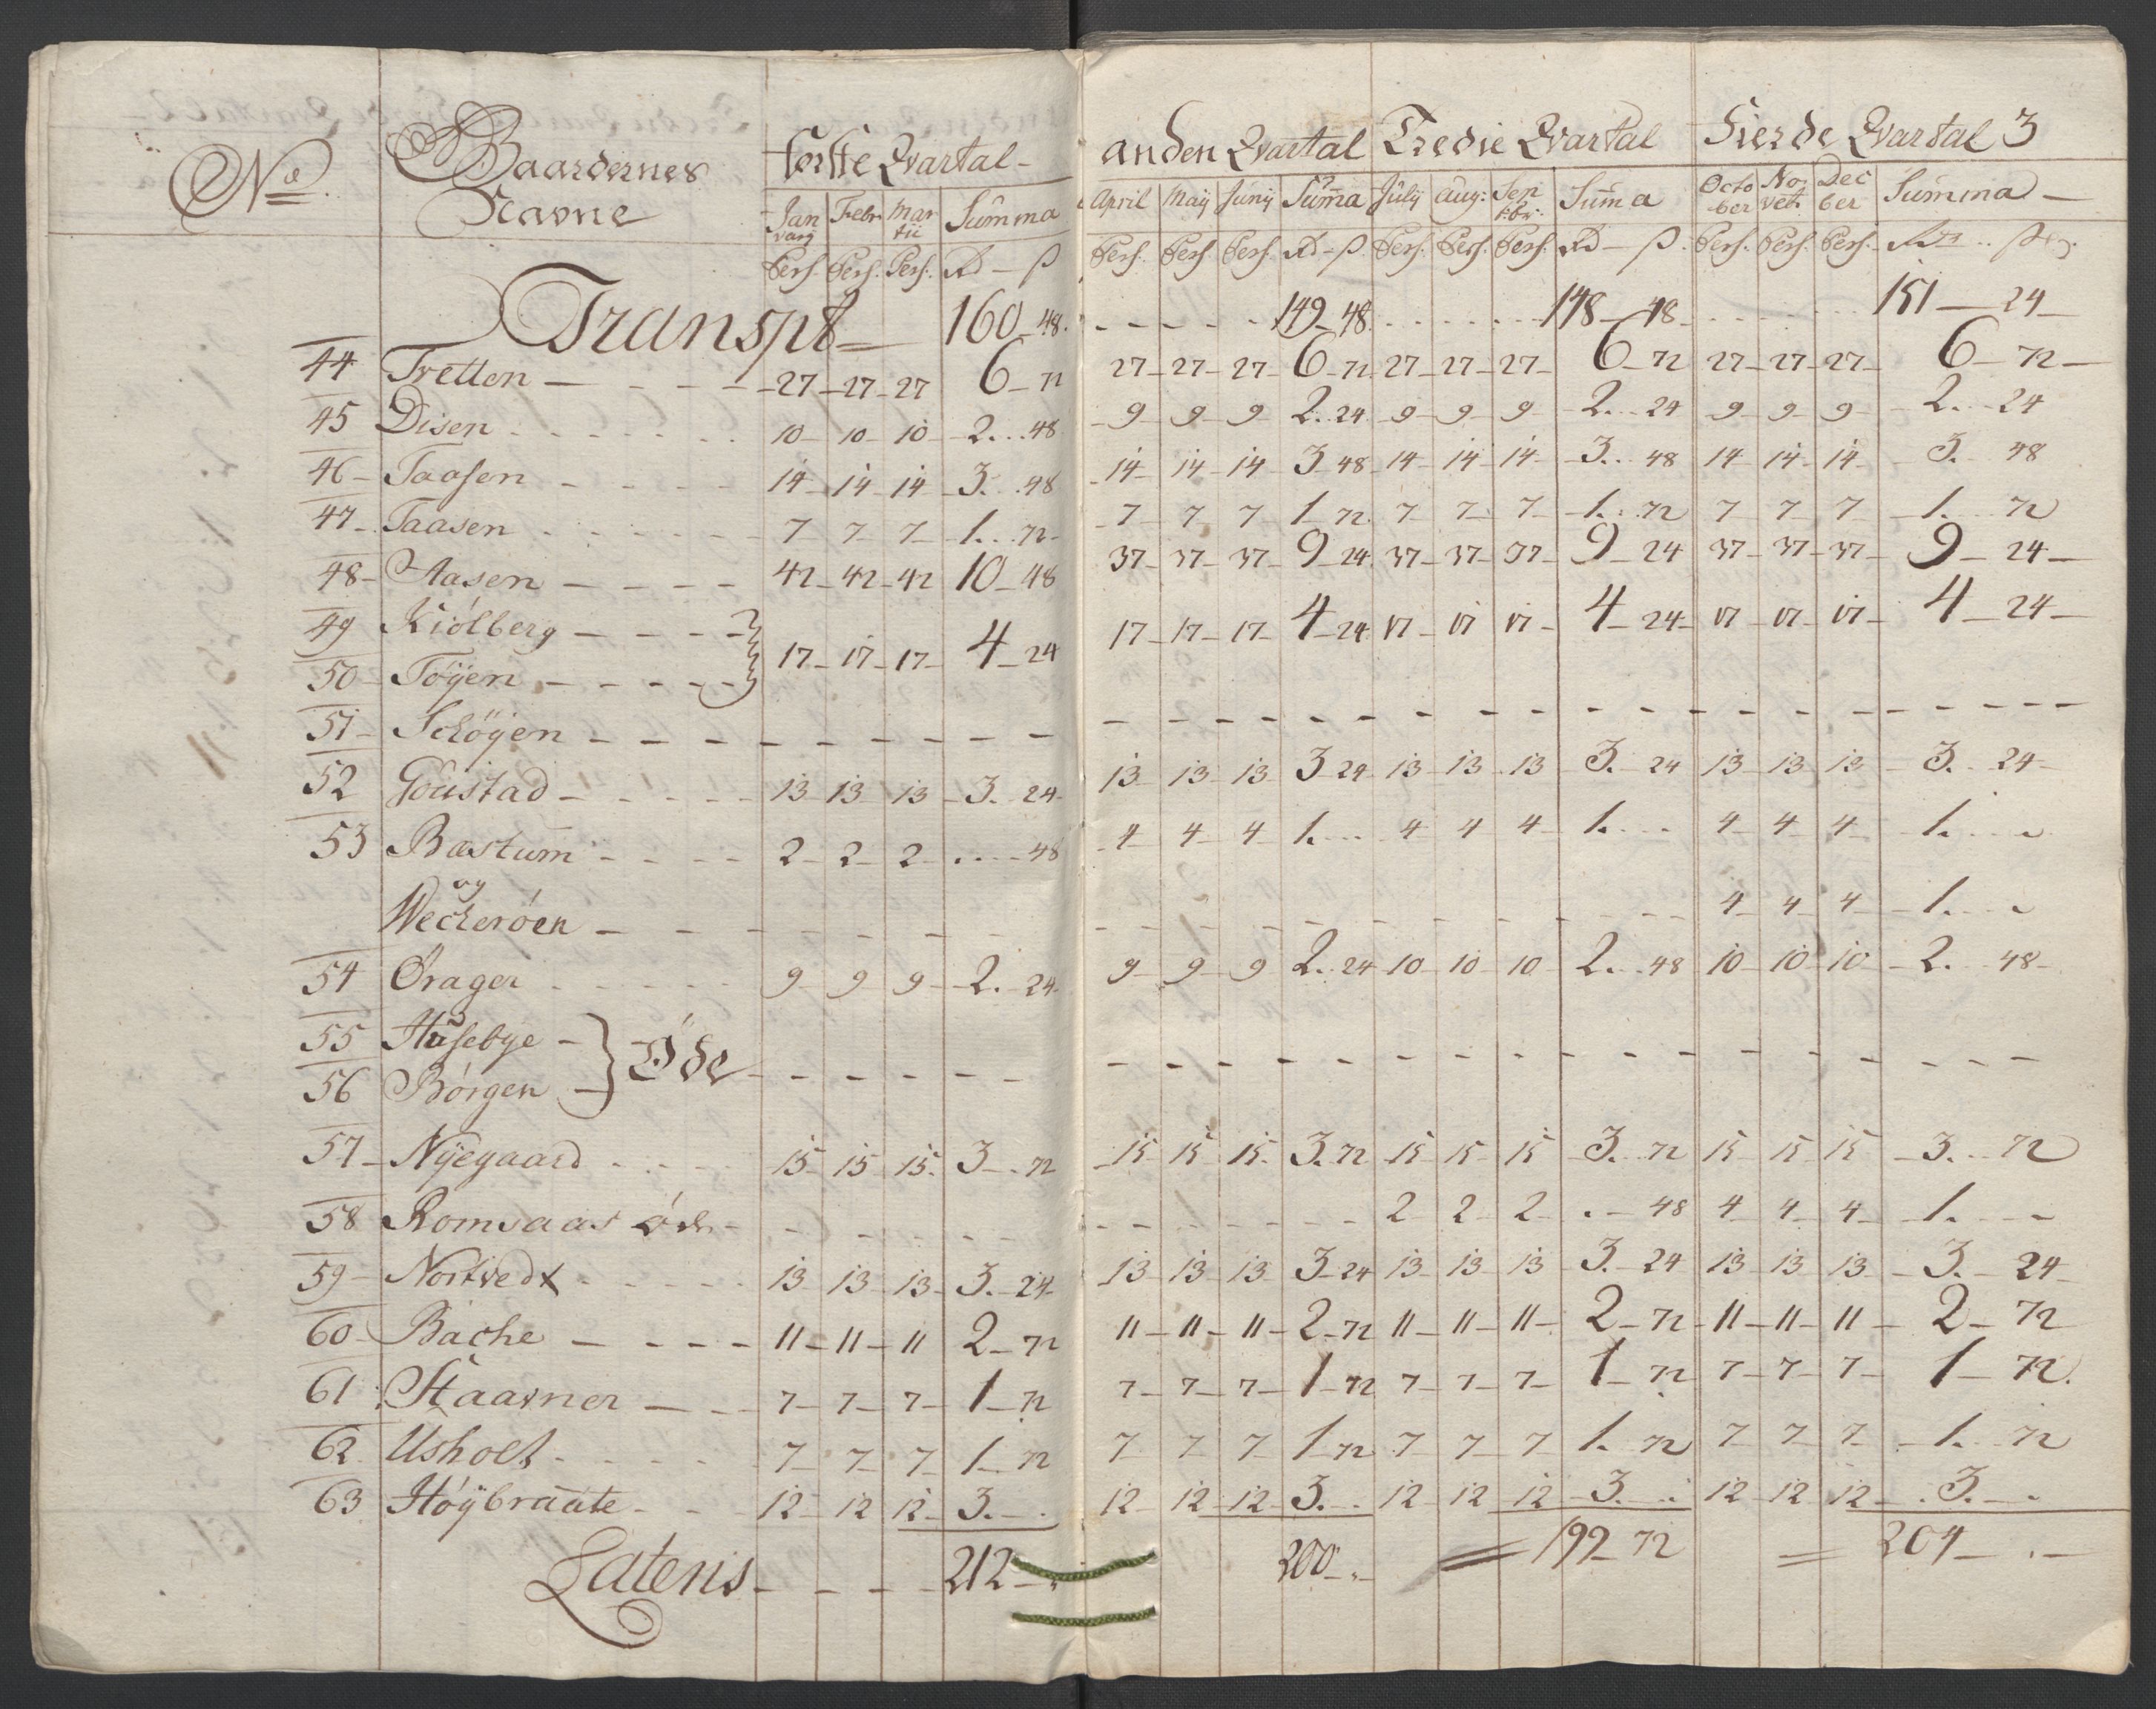 No Gaardernes første Qvartal - anden Qvartal Tredie Qvartal Fierde Qvartal 3
Navne Jan varij Febr: Mar tii Summa April Maij Junij Summa Julij aug: Sep tbr: Summa Octo ber No vet. Dec ber Summa
Pers. Pers. Pers. Rd - ß Pers. Pers. Pers. Rd - ß Pers. Pers. Pers. Rd - ß Pers. Pers. Pers. Rd ß
Transpt 160 48 149 48 148 48 151 24
44 Tvetten 27 27 27 6 72 27 27 27 6 72 27 27 27 6 72 27 27 27 6 72
45 Disen 10 10 10 2 48 9 9 9 2 24 9 9 9 2 24 9 9 9 2 24
46 Taasen 14 14 14 3 48 14 14 14 3 48 14 14 14 3 48 14 14 14 3 48
47 Taasen 7 7 7 1 72 7 7 7 1 72 7 7 7 1 72 7 7 7 1 72
48 Aasen 42 42 42 10 48 37 37 37 9 24 37 37 37 9 24 37 37 37 9 24
49 Kiólberg
50 Tóÿen 17 17 17 4 24 17 17 17 4 24 17 17 17 4 24 17 17 17 4 24
51 Schöÿen
52 Goustad 13 13 13 3 24 13 13 13 3 24 13 13 13 3 24 13 13 13 3 24
53 Bæstum 2 2 2 48 4 4 4 1 4 4 4 1 4 4 4 1
og
Weckeróen 4 4 4 1
54 Ørager 9 9 9 2 24 9 9 9 2 24 10 10 10 2 48 10 10 10 2 48
55 Husebye
56 Børgen } Øde
57 Nÿegaard 15 15 15 3 72 15 15 15 3 72 15 15 15 3 72 15 15 15 3 72
58 Romsaas øde 2 2 2 48 4 4 4 1
59 Nortvedt 13 13 13 3 24 13 13 13 3 24 13 13 13 3 24 13 13 13 3 24
60 Bache 11 11 11 2 72 11 11 11 2 72 11 11 11 2 72 11 11 11 2 72
61 Staavner 7 7 7 1 72 7 7 7 1 72 7 7 7 1 72 7 7 7 1 72
62 Usholt 7 7 7 1 72 7 7 7 1 72 7 7 7 1 72 7 7 7 1 72
63 Hóÿbraate 12 12 12 3 12 12 12 3 12 12 12 3 12 12 12 3
Lateris 212 200 199 72 204